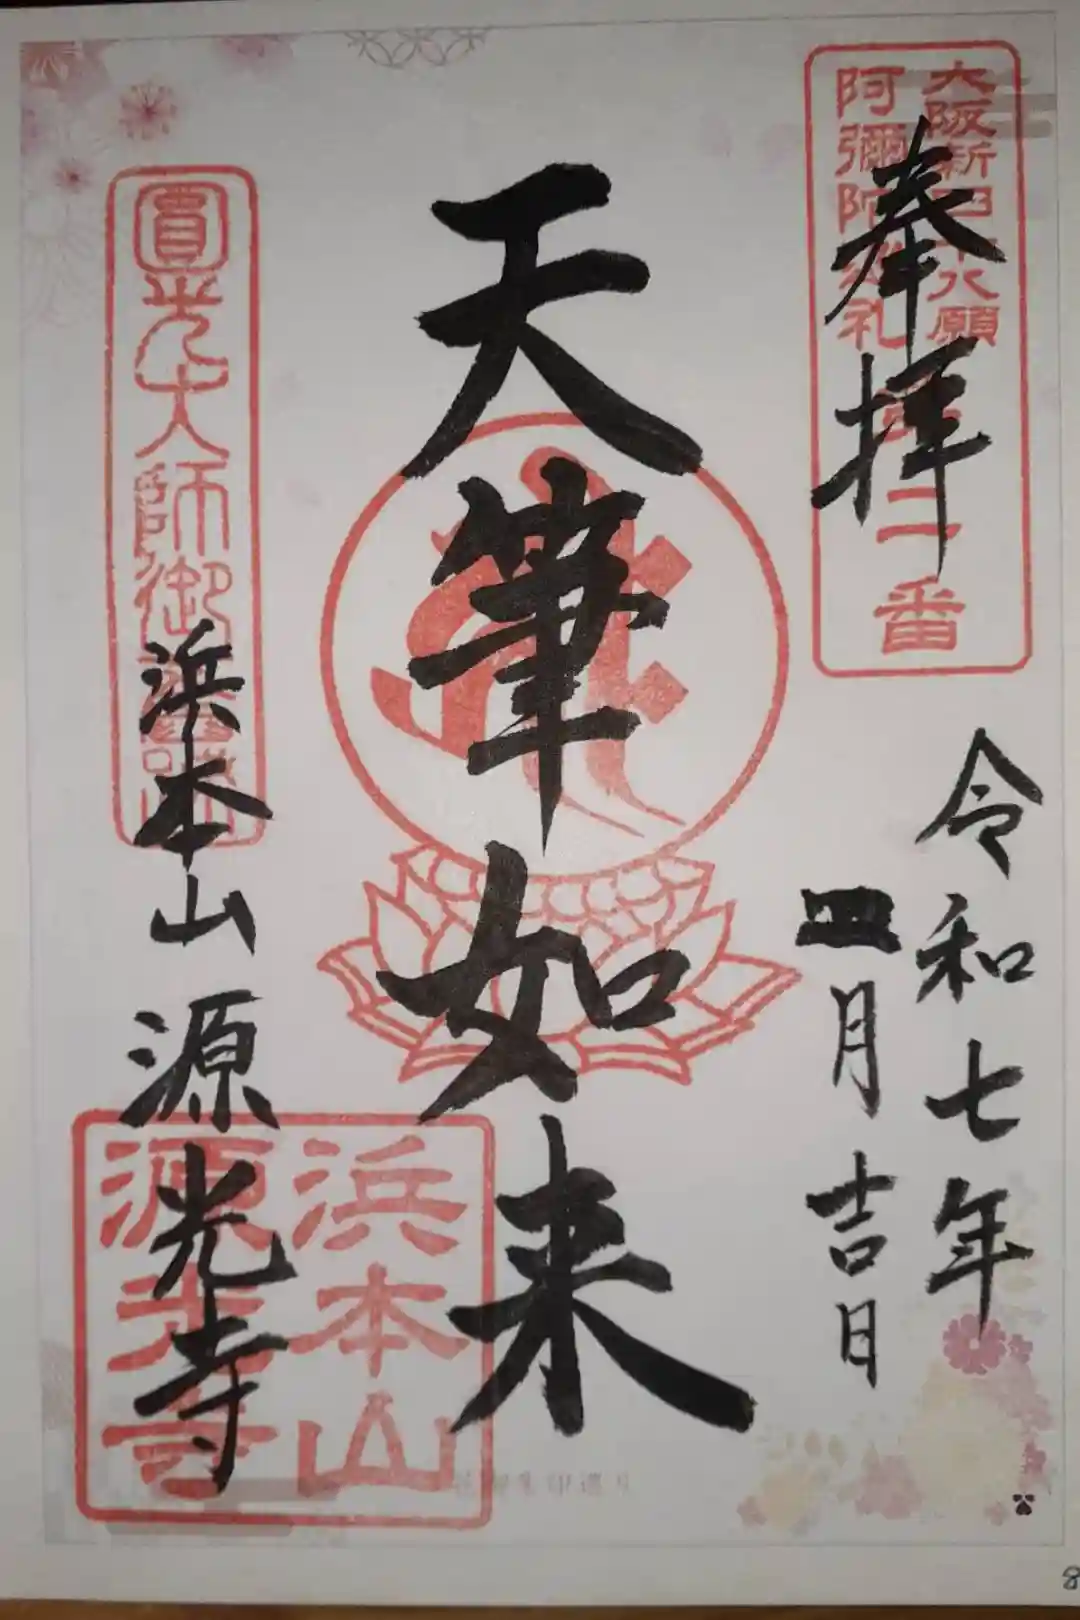 大阪新四十八願
阿彌陀巡礼
第二番
奉拝
令和七年
四月吉日
天筆如来
圓光大師御遺跡
浜本山源光寺
浜本山
源光寺
8